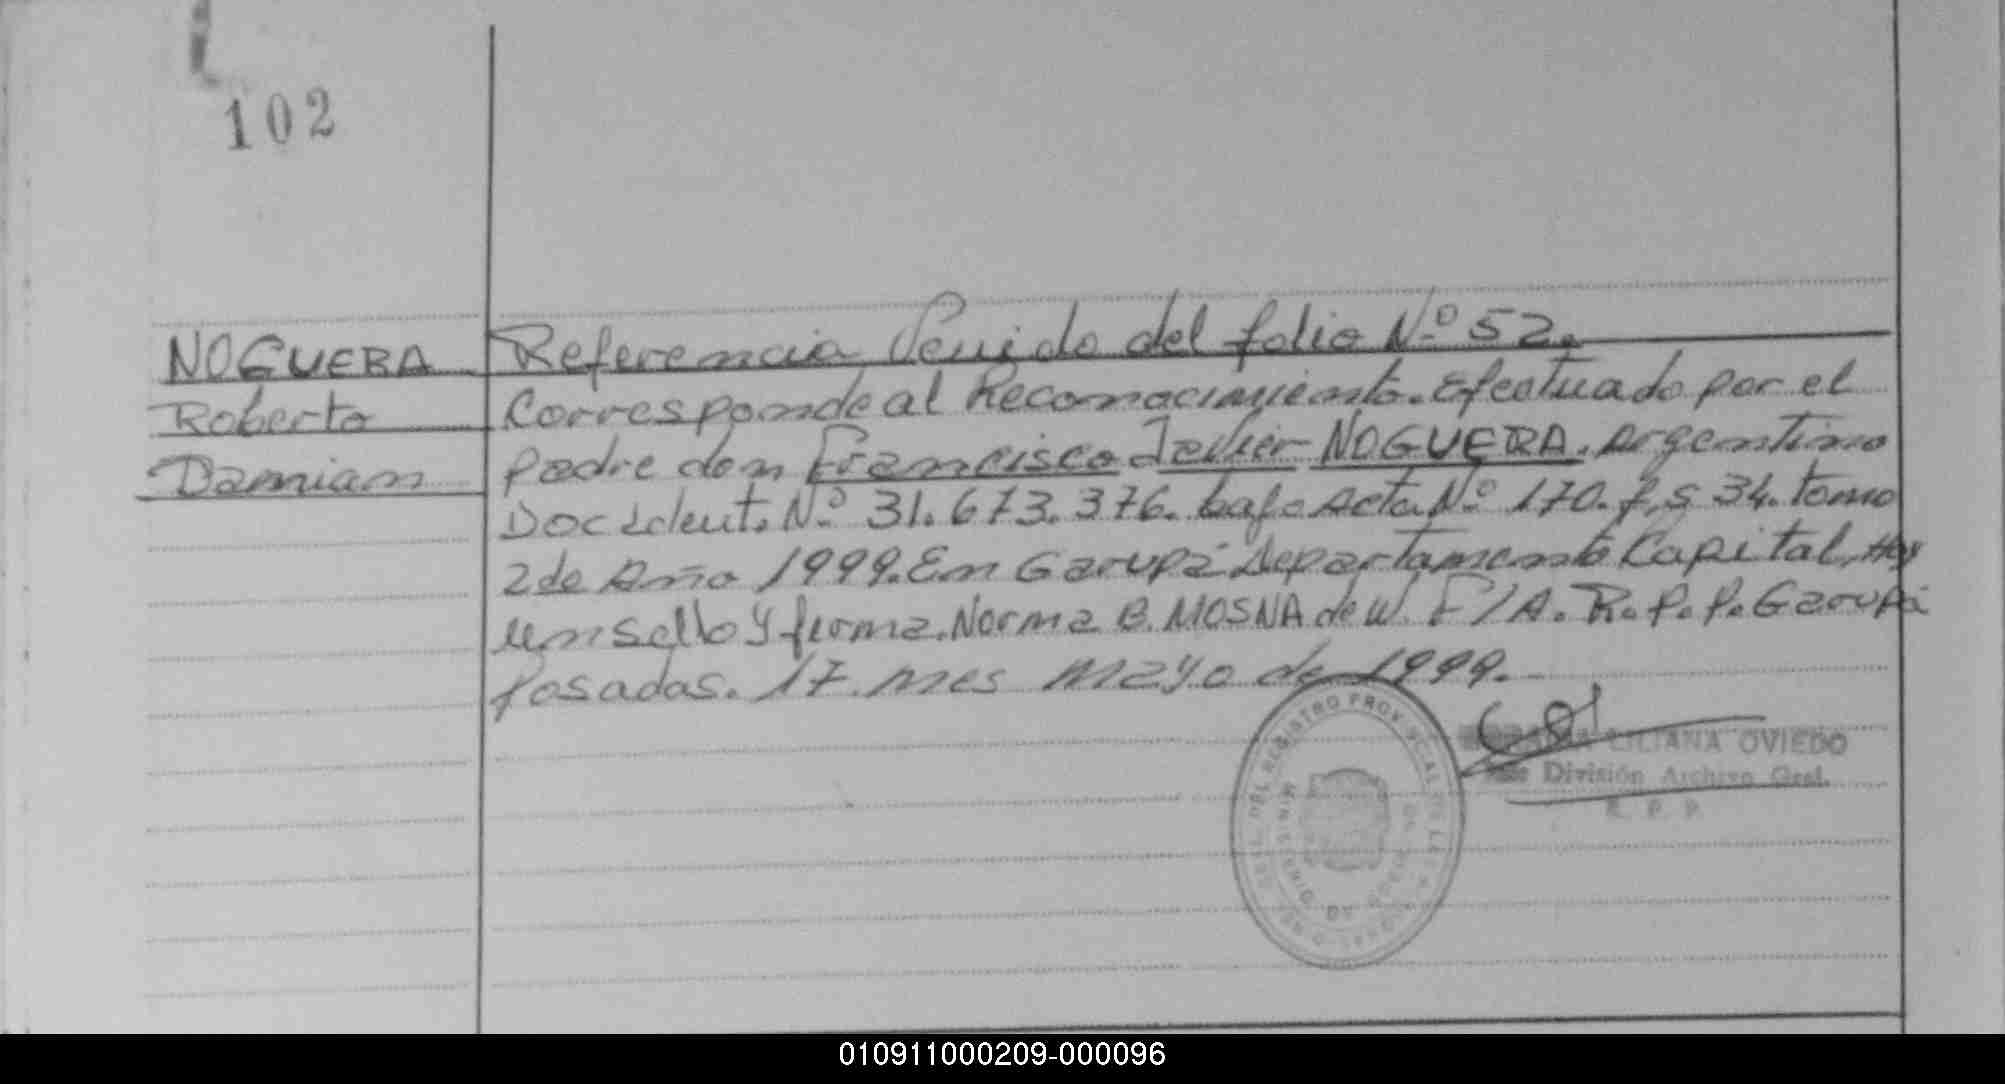 102
NOGUERA
Roberto
Damian
Referencia Venido del folio Nº 52.
Corresponde al Reconocimiento. Efectuado por el
padre don Francisco Javier NOGUERA. Argentino
Doc Ident. Nº 31.673.376. bajo Acta Nº 170. f,s 34. tomo
2 de Año 1999. En Garupá Departamento Capital, Hay
un sello y firma. Norma B. MOSNA de W. F/A. R.P.P. Garupá
Posadas. 17. mes Mayo de 1999.
LILIANA OVIEDO
División Archivo Gral.
R. P. P.
DEL REGISTRO PROVINCIAL DE LAS PERSONAS
MINISTERIO DE GOBIERNO
010911000209-000096